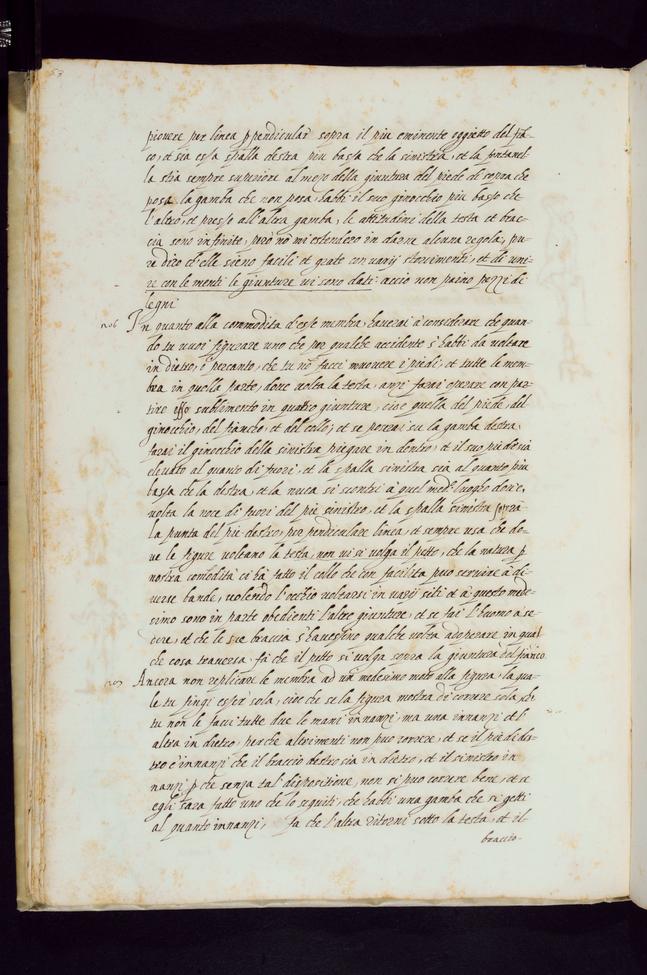 piouere per linea ppendicular sopra il piu eminente oggetto del fiã-
co, et sea essa spalla destra piu bassa che la sinistra, et la fontanel-
la stia sempre superiore al mezo della giuntura del piede di sopra che
posa la gamba che non posa, habbi il suo ginocchio piu basso che
l'altro, et presso all'altra gamba, le attitudini della testa et brac-
cia sono infinite, però nõ mi estendero in darne alcuna regola, pu-
re dico ch'elle sieno facili et grate con varij storcimenti, et di uni-
re con le menti le giunture ui sono dati accio non paino pezzi di
legni
206 In quanto alla commodita d'esse membra haverai à considerare che quan-
do tu vuoi figurare uno che per qualche accidente s'habbi da uoltare
in dietro, ò percanto, che tu nõ facci muouere i piedi, et tutte le mem-
bra in quella parte, doue uolta la testa, anzi farai operare con par-
tire esso suoltimento in quatro giunture, cioe quella del piede, del
ginocchio, del fiancho, et del collo; et se poserai su la gamba destra,
farai il ginocchio della sinistra piegare in dentro, et il suo piede sia
eleuato al quanto di fuori, et la spalla sinistra sia al quanto piu
bassa che la destra, et la nuca si scontri à quel med.º luogho dou'e
uolta la noce di fuori del pie sinistro, et la spalla sinistra sopra
la punta del pie destro, per perpendiculare linea, et sempre usa che do-
ue le figure uoltano la testa, non ui si uolga il petto, che la natura p
nostra comodità ci hà fatto il collo che con facilita puo seruire à di-
uerse bande, uolendo l'occhio uoltarsi in uarij siti et à questo mede-
simo sono in parte obedienti l'altre giunture, et se fai l'huomo à se-
dere, et che le sue braccia s'hauessino qualche uolta adoperare in qual
che cosa trauersa, fà che il petto si uolga sopra la giuntura del fianco
207 Ancora non replicare le membra ad un medesimo moto alla figura, la qua-
le tu fingi esser sola, cioe che se la figura mostra di correre sola, ch
tu non le facci tutte due le mani innanzi, ma una innanzi et l'
altra in dietro, perche altrimenti non puo correre, et se il piede des-
tro è innanzi che il braccio destro sia in dietro, et il sinistro in
nanzi p che senza tal' dispositione, non si puo correre bene, et se
egli sara fatto uno che lo seguiti, che habbi una gamba che si getti
al quanto innanzi, fa che l'altra ritorni sotto la testa, et il
braccio-